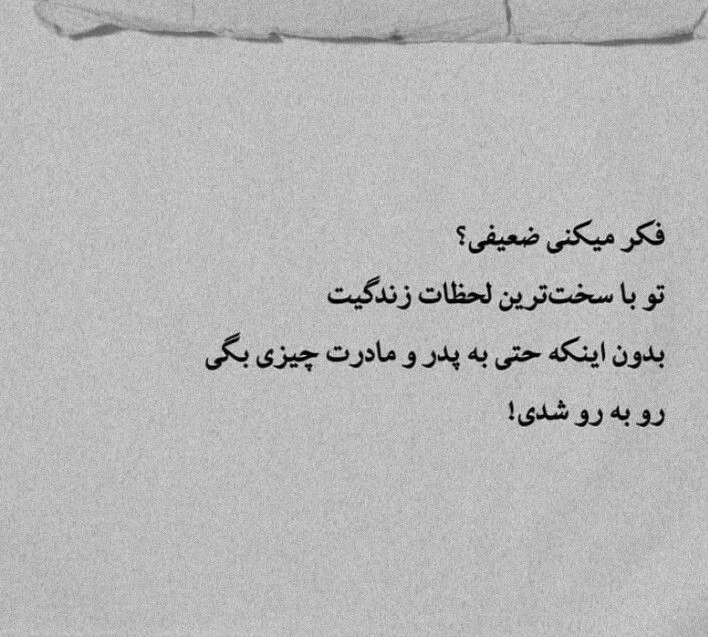 فکر میکنی ضعیفی؟
تو با سخت‌ترین لحظات زندگیت
بدون اینکه حتی به پدر و مادرت چیزی بگی
رو به رو شدی!